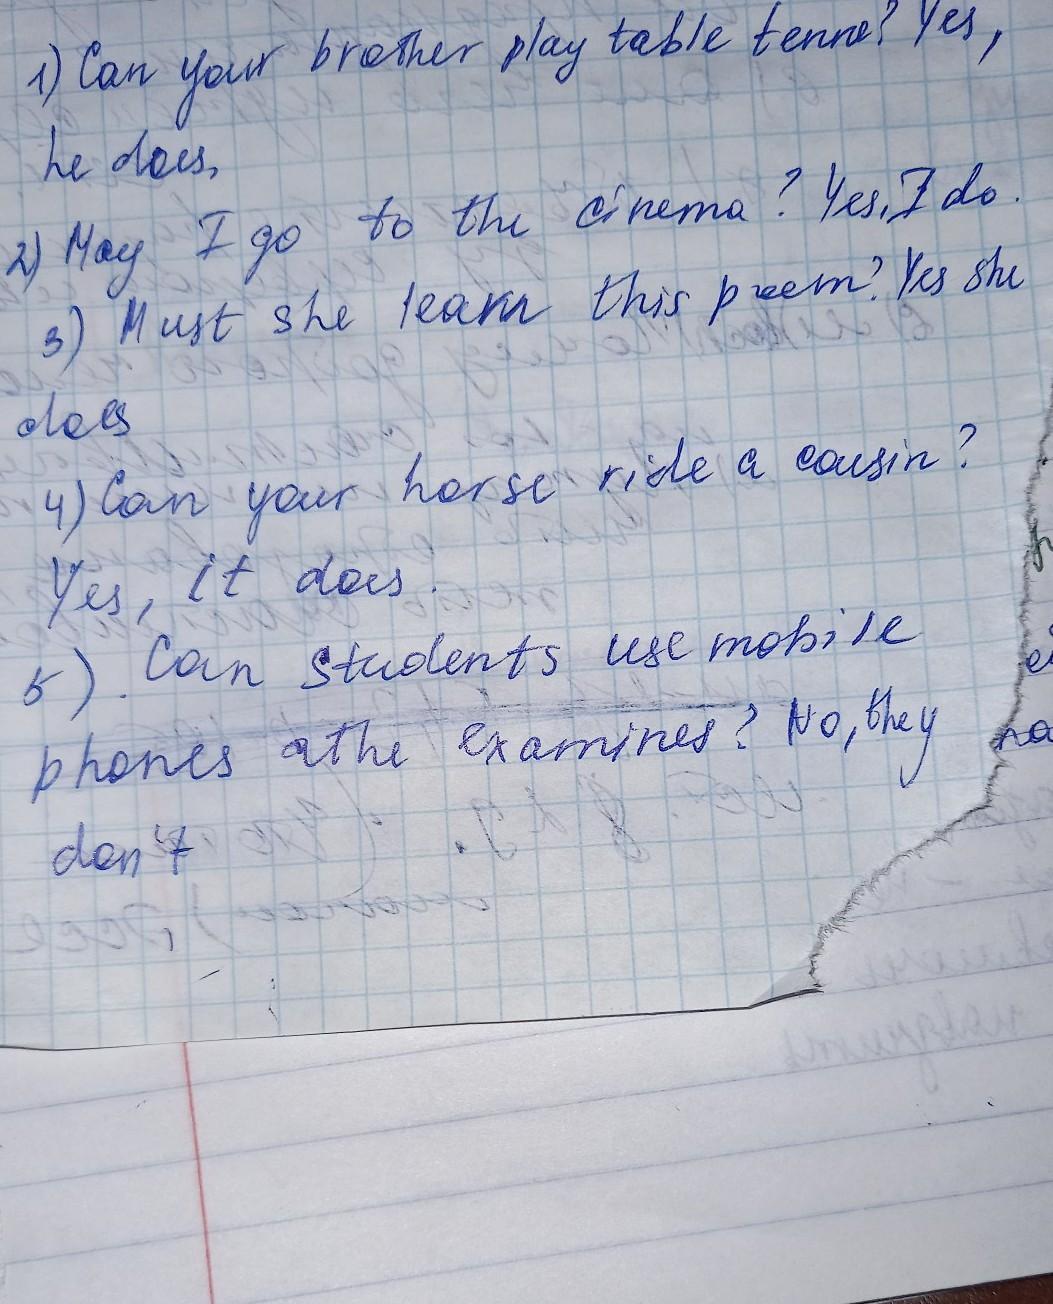 1) Can your brother play table tenne? Yes,
he does,
2) May I go to the cinema? Yes, I do.
3) Must she learn this poem? Yes she
does
4) Can your horse ride a cousin?
Yes, it does.
5). Can students use mobile
phones athe examines? No, they
don't